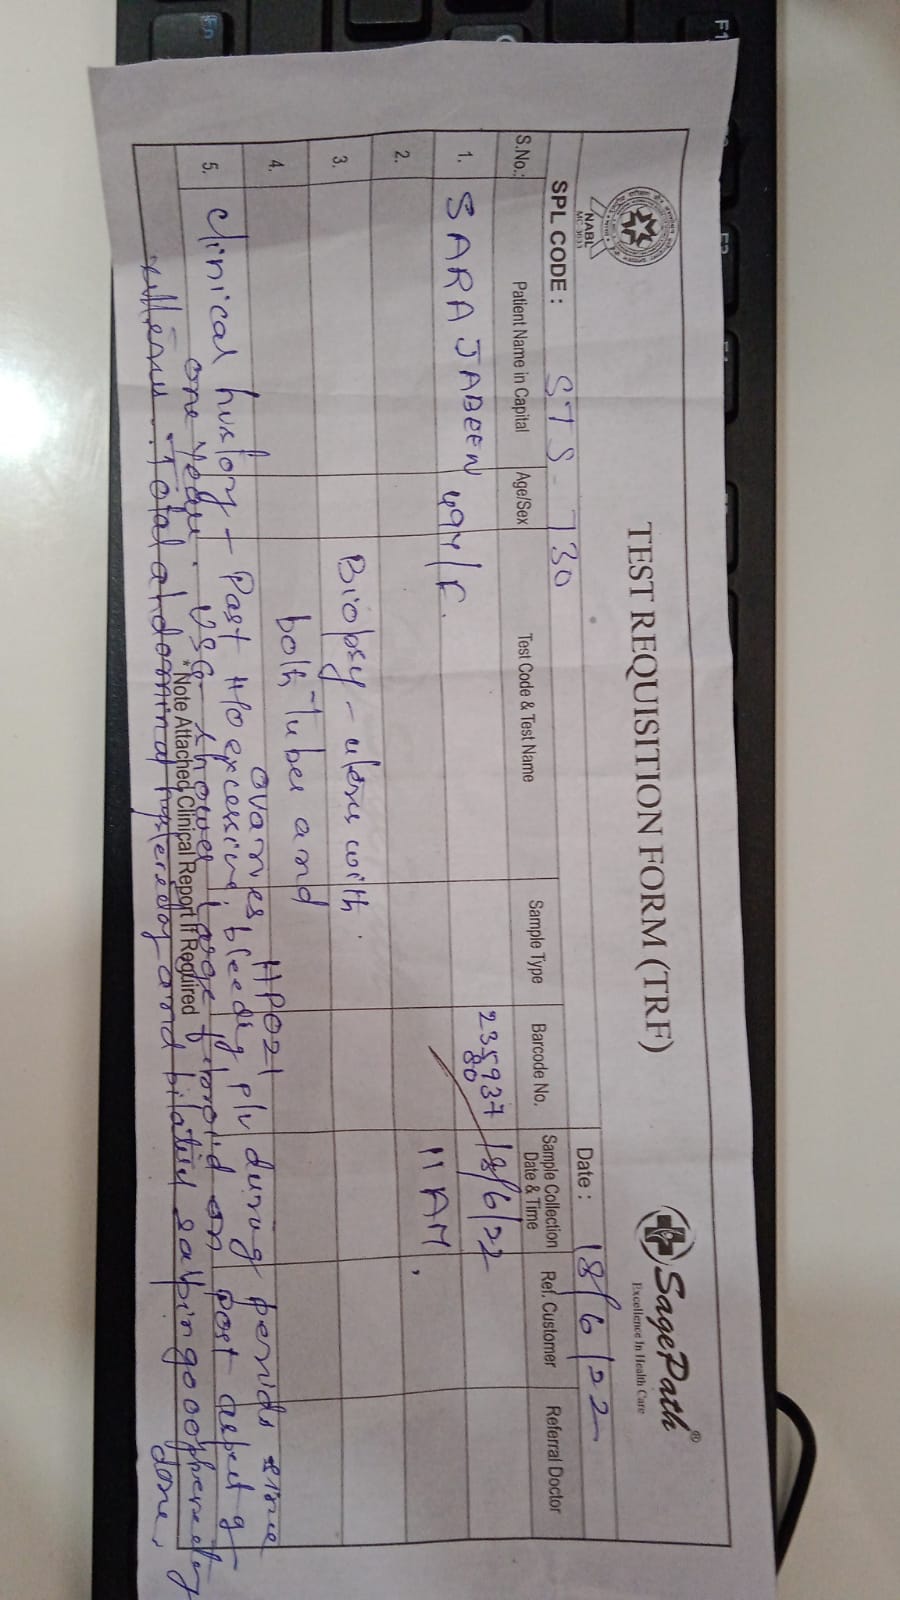 NABL
MC-3033
TEST REQUISITION FORM (TRF)
SagePath®
Excellence In Health Care
SPL CODE : STS - 730
Date : 18/6/22
S.No.: Patient Name in Capital Age/Sex Test Code & Test Name Sample Type Barcode No. Sample Collection Date & Time Ref. Customer Referral Doctor
1. SARA JABEEN 49Y/F. 235937 18/6/22
80
2. 11 AM.
3. Biopsy - uterus with
4. both tubes and
ovaries HP021
5. Clinical history - Past H/O excessive bleeding p/v during periods since
one year. USG shows large fibroid on post aspect of
* Note Attached Clinical Report If Required
uterus. Total abdominal hysterectomy and bilateral salpingoophorectomy
done.